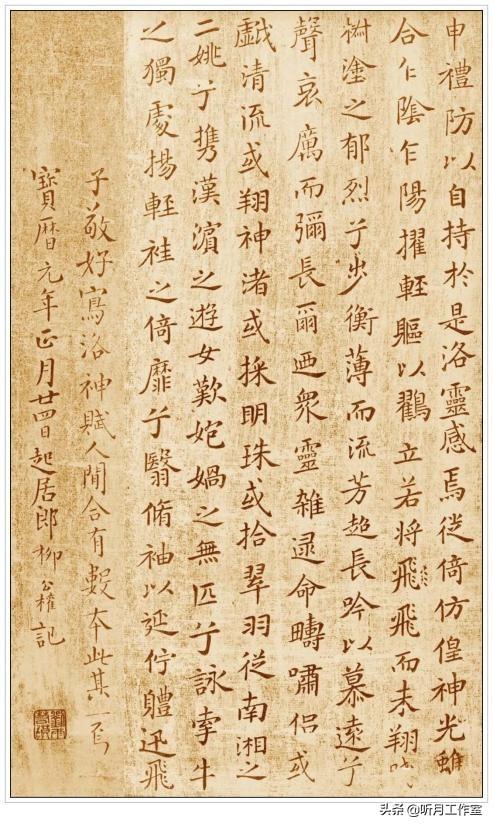 申禮防以自持於是洛靈感焉徙倚仿偟神光離
合乍陰乍陽擢輕軀以鶴立若將飛飛而未翔踐
椒塗之郁烈兮步衡薄而流芳超長吟以慕遠兮
聲哀厲而彌長爾迺衆靈雜遝命疇嘯侶或
戲清流或翔神渚或採明珠或拾翠羽從南湘之
二姚兮携漢濱之遊女歎媧之無匹兮詠牽牛
之獨處揚輕袿之倚靡兮翳脩袖以延佇體迅飛
子敬好寫洛神賦人間合有數本此其一焉
寶曆元年正月廿四日起居郎柳公權記
头条 @听月工作室